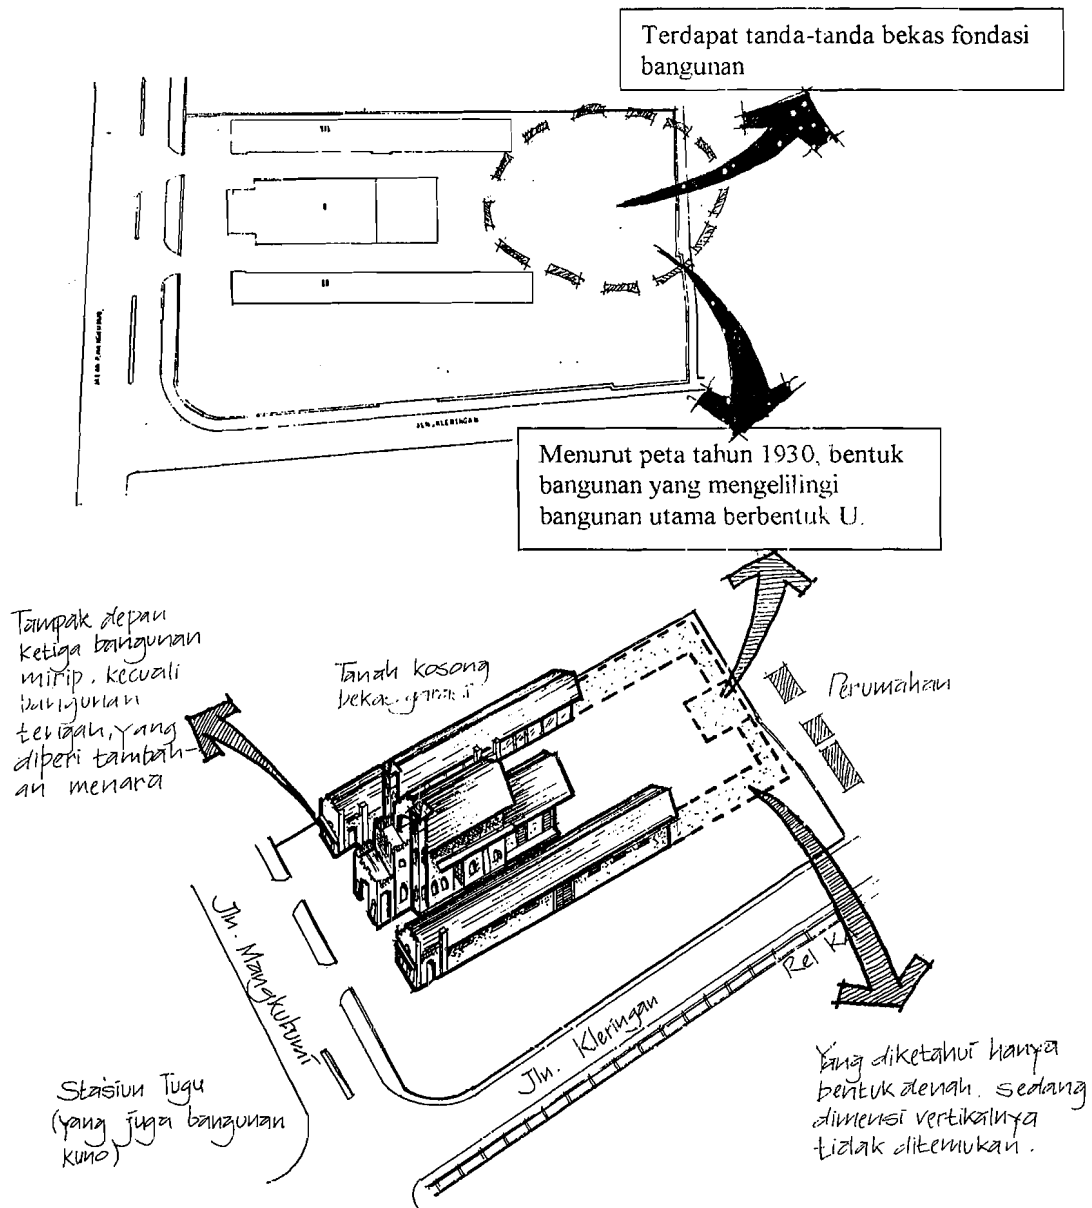 Terdapat tanda-tanda bekas fondasi
bangunan
III
I
II
JLN. KLERINGAN
Menurut peta tahun 1930, bentuk
bangunan yang mengelilingi
bangunan utama berbentuk U.
Tampak depan
ketiga bangunan
mirip, kecuali
bangunan
tengah, yang
diberi tambah-
an menara
Tanah kosong
bekas
Perumahan
Jln. Mangkubumi
Jln. Kleringan
Rel KA
Stasiun Tugu
(yang juga bangunan
kuno)
Yang diketahui hanya
bentuk denah. sedang
dimensi vertikalnya
tidak ditemukan.